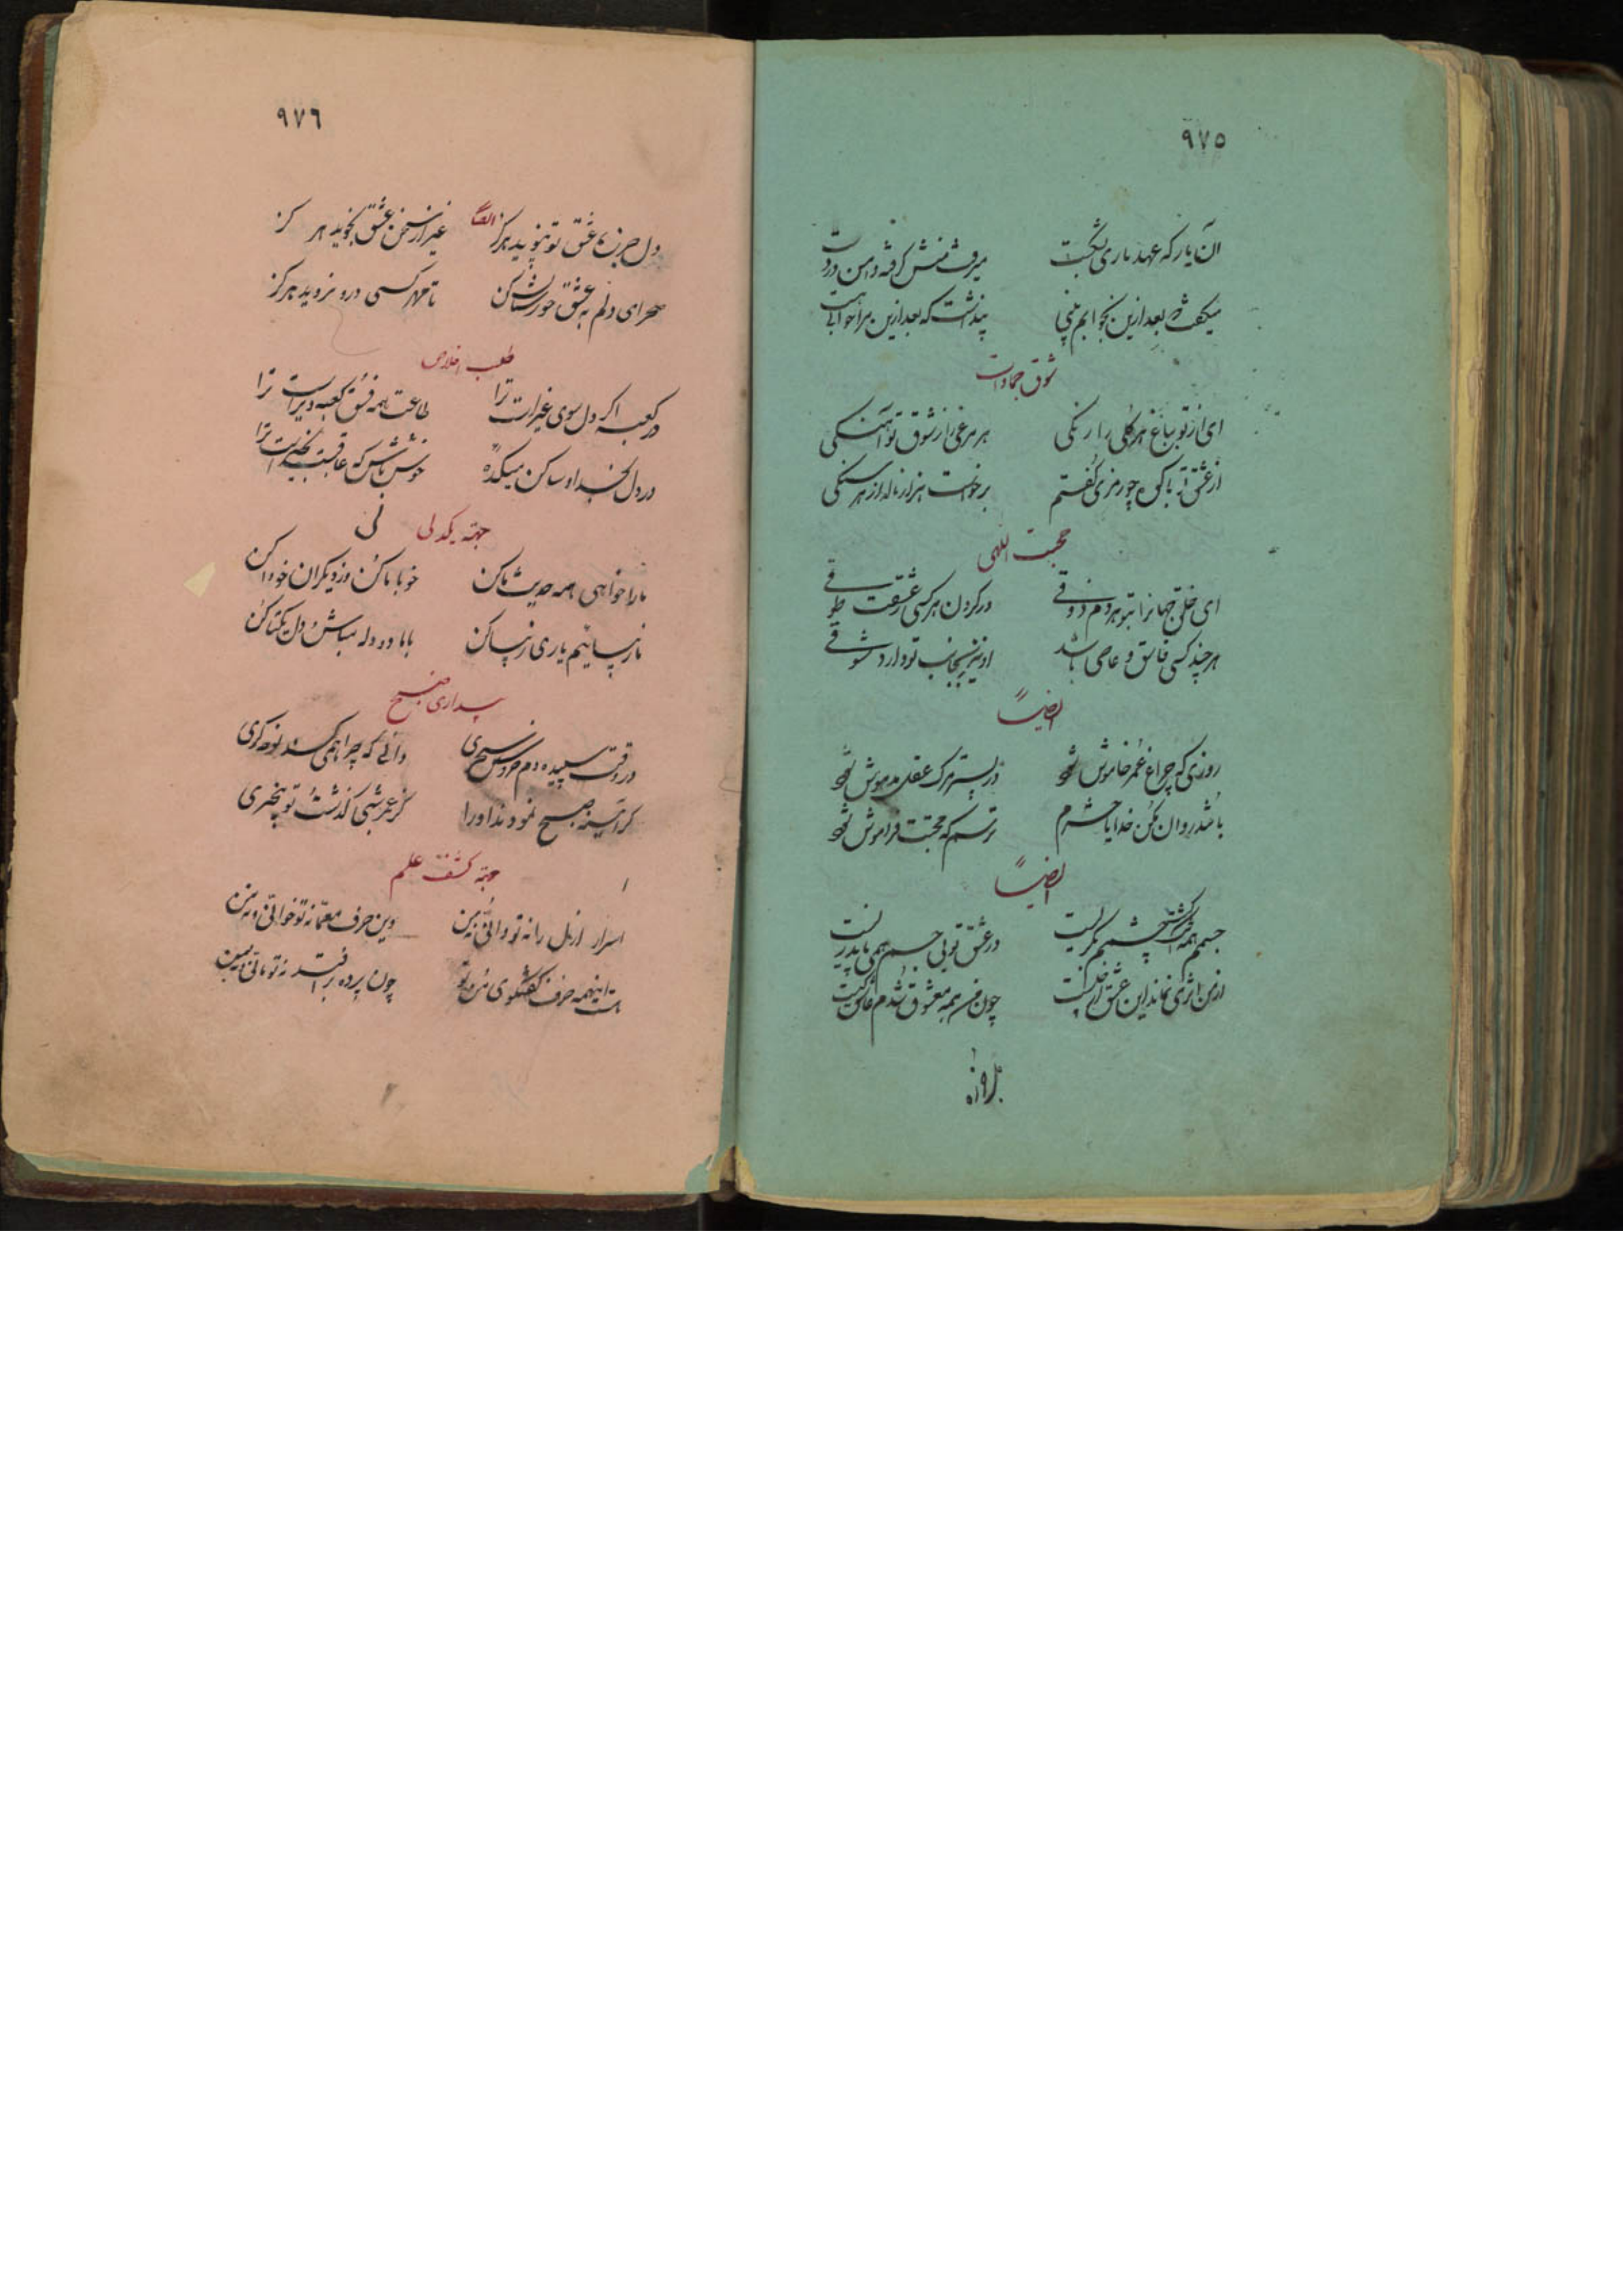 ٩٧٥
آن یار که عهد یاری بشکست میرفت و منش گرفته دامن در دست
میگفت بعد ازین بخوابم بینی پنداشت که بعد ازین مرا خوابی هست
شوق جمادات
ای از تو بباغ هر گلی را رنگی هر مرغی را ز شوق تو آهنگی
از عشق تو با کوه چو رمزی گفتم برخواست هزار ناله از هر سنگی
محبت اللهی
ای خلق جهانرا بتو هر دم ذوقی در گردن هر کسی ز عشقت طوقی
هر چند کسی فاسق و عاصی باشد او نیز بجانب تو دارد شوقی
ایضاً
روزی که چراغ عمر خاموش شود در بستر مرگ عقل مدهوش شود
مکن خدایا حشرم ترسم که محبتت فراموش شود
ایضاً
جسمم همه اشک گشت چشمم بگریست در عشق تو بی جسم همی باید زیست
از من اثری نماند این عشق از چیست چون من همه معشوق شدم عاشق کیست
٩٧٦
ایضاً
دل جز ره عشق تو نپوید هرگز غیر از سخن عشق نگوید هرگز
صحرای دلم عشق تو شورستان کرد تا مهر کسی درو نروید هرگز
طلب اخلاص
در کعبه اگر دل سوی غیرست ترا طاعت همه فسق کعبه دیرست ترا
ور دل بخدا و ساکن میکده خوش باش که عاقبت بخیرست ترا
جهة یکدلی
ما را خواهی همه حدیث ما کن خو با ما کن وز دیگران خو وا کن
ما زیبائیم یاری زیبا کن با ما دو دله مباش دل یکتا کن
بیداری صبح
در وقت سپیده دم خروس سحری دانی که چرا همی کند نوحه گری
کز آینه صبح نمودند او را کز عمر شبی گذشت و تو بیخبری
جهة کشف علم
اسرار ازل را نه تو دانی و نه من وین حرف معما نه تو خوانی و نه من
هست اینهمه حرف گفتگوی من و تو چون پرده برافتد نه تو مانی و نه من